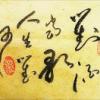 對酒
當歌
人生幾
何